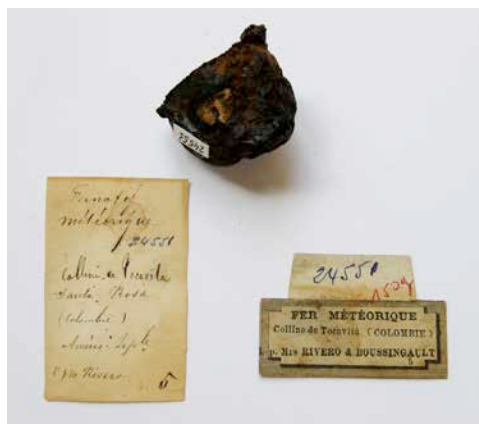 météorique
24551
Colline de Tocavita
Santa Rosa
(Colombie)
Rivero
5
24551
150g
FER MÉTÉORIQUE
Colline de Tocavita (COLOMBIE)
p. Mrs RIVERO & BOUSSINGAULT